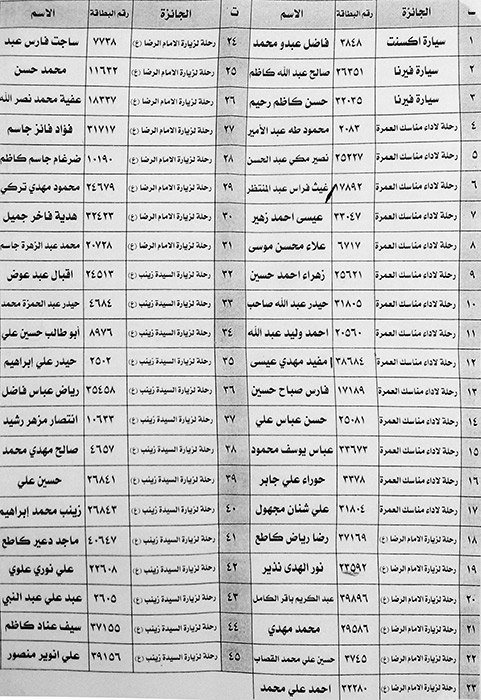 ت الجائزة رقم البطاقة الاسم
١ سيارة اكسنت ٣٨٤٨ فاضل عبدو محمد
٢ سيارة فيرنا ٢٦٣٥١ صالح عبد الله كاظم
٣ سيارة فيرنا ٣٢٠٣٥ حسن كاظم رحيم
٤ رحلة لاداء مناسك العمرة ٢٠٨٣ محمود طه عبد الأمير
٥ رحلة لاداء مناسك العمرة ٢٥٢٢٧ نصير مكي عبد الحسن
٦ رحلة لاداء مناسك العمرة ١٧٨٩٢ غيث فراس عبد المنتظر
٧ رحلة لاداء مناسك العمرة ٣٣٠٤٧ عيسى احمد زهير
٨ رحلة لاداء مناسك العمرة ٦٧١٧ علاء محسن موسى
٩ رحلة لاداء مناسك العمرة ٢٥٦٢١ زهراء احمد حسين
١٠ رحلة لاداء مناسك العمرة ٣١٨٠٥ حيدر عبد الله صاحب
١١ رحلة لاداء مناسك العمرة ٢٠٥٦٠ احمد وليد عبد الله
١٢ رحلة لاداء مناسك العمرة ٣٨٦٨٤ مفيد مهدي عيسى
١٣ رحلة لاداء مناسك العمرة ١٧١٨٩ فارس صباح حسين
١٤ رحلة لاداء مناسك العمرة ٢٥٠٨١ حسن عباس علي
١٥ رحلة لاداء مناسك العمرة ٣٣٦٧٣ عباس يوسف محمود
١٦ رحلة لاداء مناسك العمرة ٣٣٧٨ حوراء علي جابر
١٧ رحلة لاداء مناسك العمرة ٣١٨٠٤ علي شنان مجهول
١٨ رحلة لزيارة الامام الرضا (ع) ٣٧١٦٩ رضا رياض كاطع
١٩ رحلة لزيارة الامام الرضا (ع) ٢٣٥٩٢ نور الهدى نذير
٢٠ رحلة لزيارة الامام الرضا (ع) ٣٩٨٩٦ عبد الكريم باقر الكامل
٢١ رحلة لزيارة الامام الرضا (ع) ٢٩٥٨٦ محمد مهدي
٢٢ رحلة لزيارة الامام الرضا (ع) ٣٧٤٥ حسين علي محمد القصاب
٢٣ رحلة لزيارة الامام الرضا (ع) ٣٢٢٨٠ احمد علي محمد
ت الجائزة رقم البطاقة الاسم
٢٤ رحلة لزيارة الامام الرضا (ع) ٧٧٣٨ ساجت فارس عبد
٢٥ رحلة لزيارة الامام الرضا (ع) ١١٦٣٢ محمد حسن
٢٦ رحلة لزيارة الامام الرضا (ع) ١٨٣٣٧ عفية محمد نصر الله
٢٧ رحلة لزيارة الامام الرضا (ع) ٣١٧١٧ فؤاد فائز جاسم
٢٨ رحلة لزيارة الامام الرضا (ع) ١٠١٩٠ ضرغام جاسم كاظم
٢٩ رحلة لزيارة الامام الرضا (ع) ٢٤٦٧٩ محمود مهدي تركي
٣٠ رحلة لزيارة الامام الرضا (ع) ٣٢٤٢٣ هدية فاخر جميل
٣١ رحلة لزيارة الامام الرضا (ع) ٢٠٧٢٨ محمد عبد الزهرة جاسم
٣٢ رحلة لزيارة السيدة زينب (ع) ٢٤٥١٣ اقبال عبد عوض
٣٣ رحلة لزيارة السيدة زينب (ع) ٤٦٨٤ حيدر عبد الحمزة محمد
٣٤ رحلة لزيارة السيدة زينب (ع) ٨٩٧٦ أبو طالب حسين علي
٣٥ رحلة لزيارة السيدة زينب (ع) ٢٥٠٢ حيدر علي إبراهيم
٣٦ رحلة لزيارة السيدة زينب (ع) ٣٥٤٥٨ رياض عباس فاضل
٣٧ رحلة لزيارة السيدة زينب (ع) ١٠٦٣٣ انتصار مزهر رشيد
٣٨ رحلة لزيارة السيدة زينب (ع) ٤٦٥٧ صالح مهدي محمد
٣٩ رحلة لزيارة السيدة زينب (ع) ٢٦٨٤١ حسين علي
٤٠ رحلة لزيارة السيدة زينب (ع) ٢٦٨٤٣ زينب محمد إبراهيم
٤١ رحلة لزيارة السيدة زينب (ع) ٤٠٦٤٧ ماجد دعير كاطع
٤٢ رحلة لزيارة السيدة زينب (ع) ٢٢٦٠٨ علي نوري علوي
٤٣ رحلة لزيارة السيدة زينب (ع) ٢٦٠٥ عبد علي عبد النبي
٤٤ رحلة لزيارة السيدة زينب (ع) ٣٧١٥٥ سيف عناد كاظم
٤٥ رحلة لزيارة السيدة زينب (ع) ٣٩١٥٦ علي انوير منصور